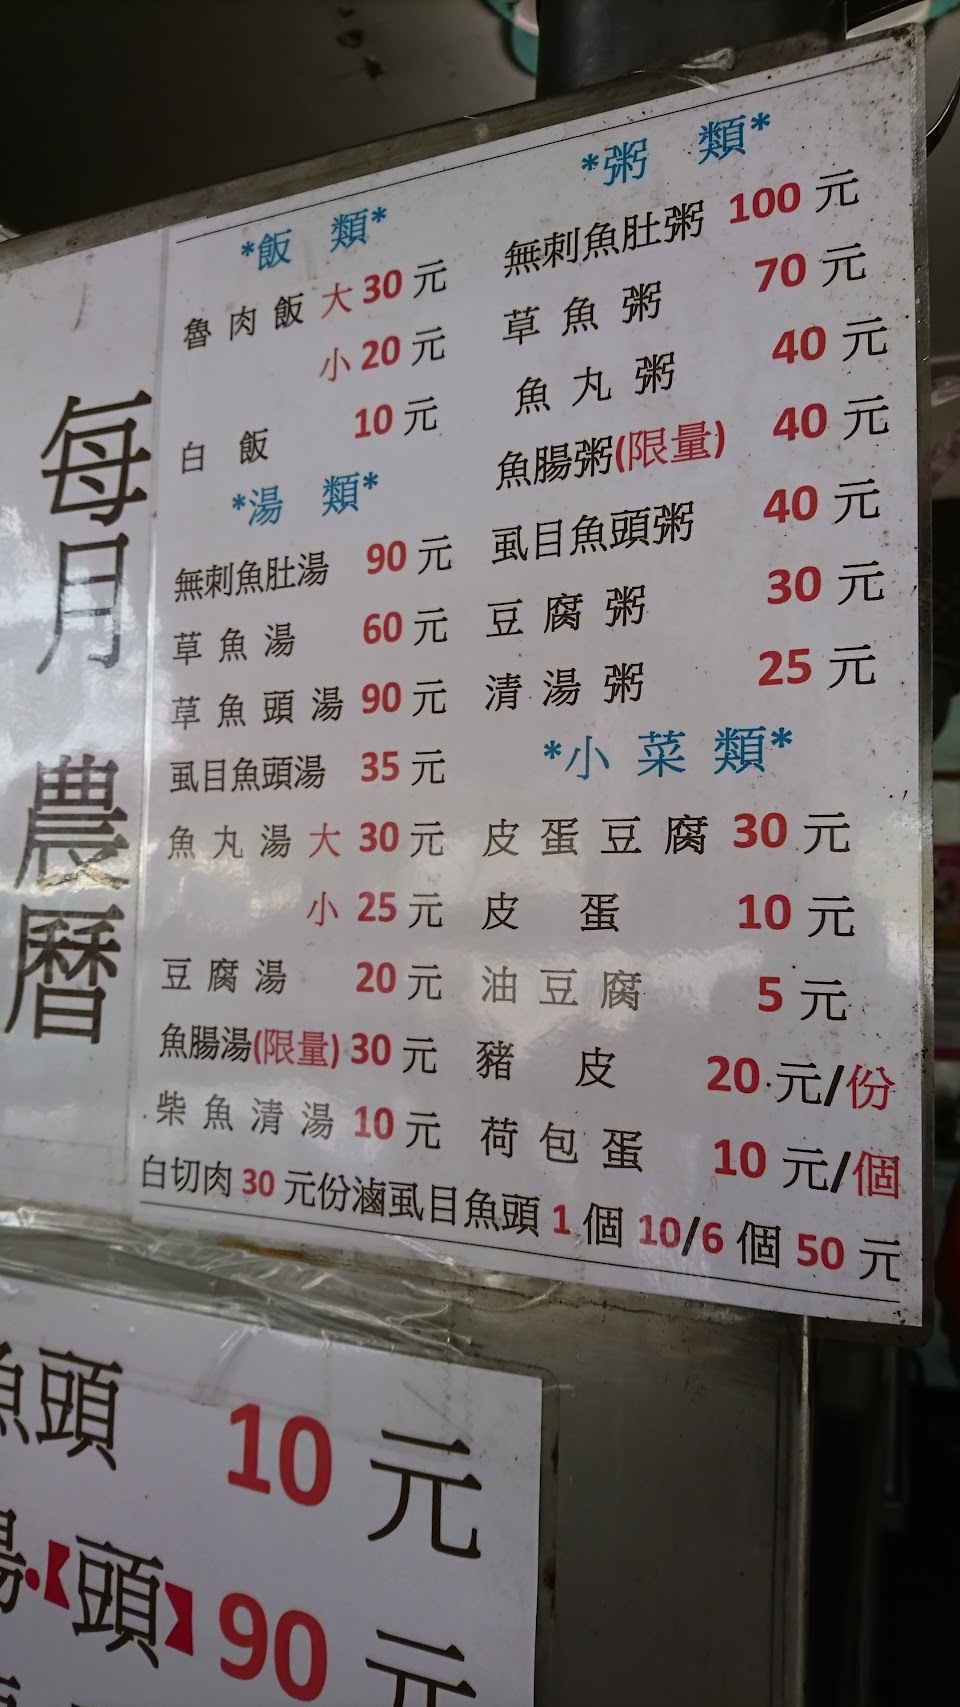 每月 農曆
*飯 類*
魯肉飯 大 30 元
小 20 元
白 飯 10 元
*湯 類*
無刺魚肚湯 90 元
草魚湯 60 元
草魚頭湯 90 元
虱目魚頭湯 35 元
魚丸湯 大 30 元
小 25 元
豆腐湯 20 元
魚腸湯(限量) 30 元
柴魚清湯 10 元
*粥 類*
無刺魚肚粥 100 元
草魚粥 70 元
魚丸粥 40 元
魚腸粥(限量) 40 元
虱目魚頭粥 40 元
豆腐粥 30 元
清湯粥 25 元
*小菜類*
皮蛋豆腐 30 元
皮 蛋 10 元
油豆腐 5 元
豬 皮 20 元/份
荷包蛋 10 元/個
白切肉 30 元份滷虱目魚頭 1 個 10/6 個 50 元
魚頭 10 元
湯.【頭】90 元
元